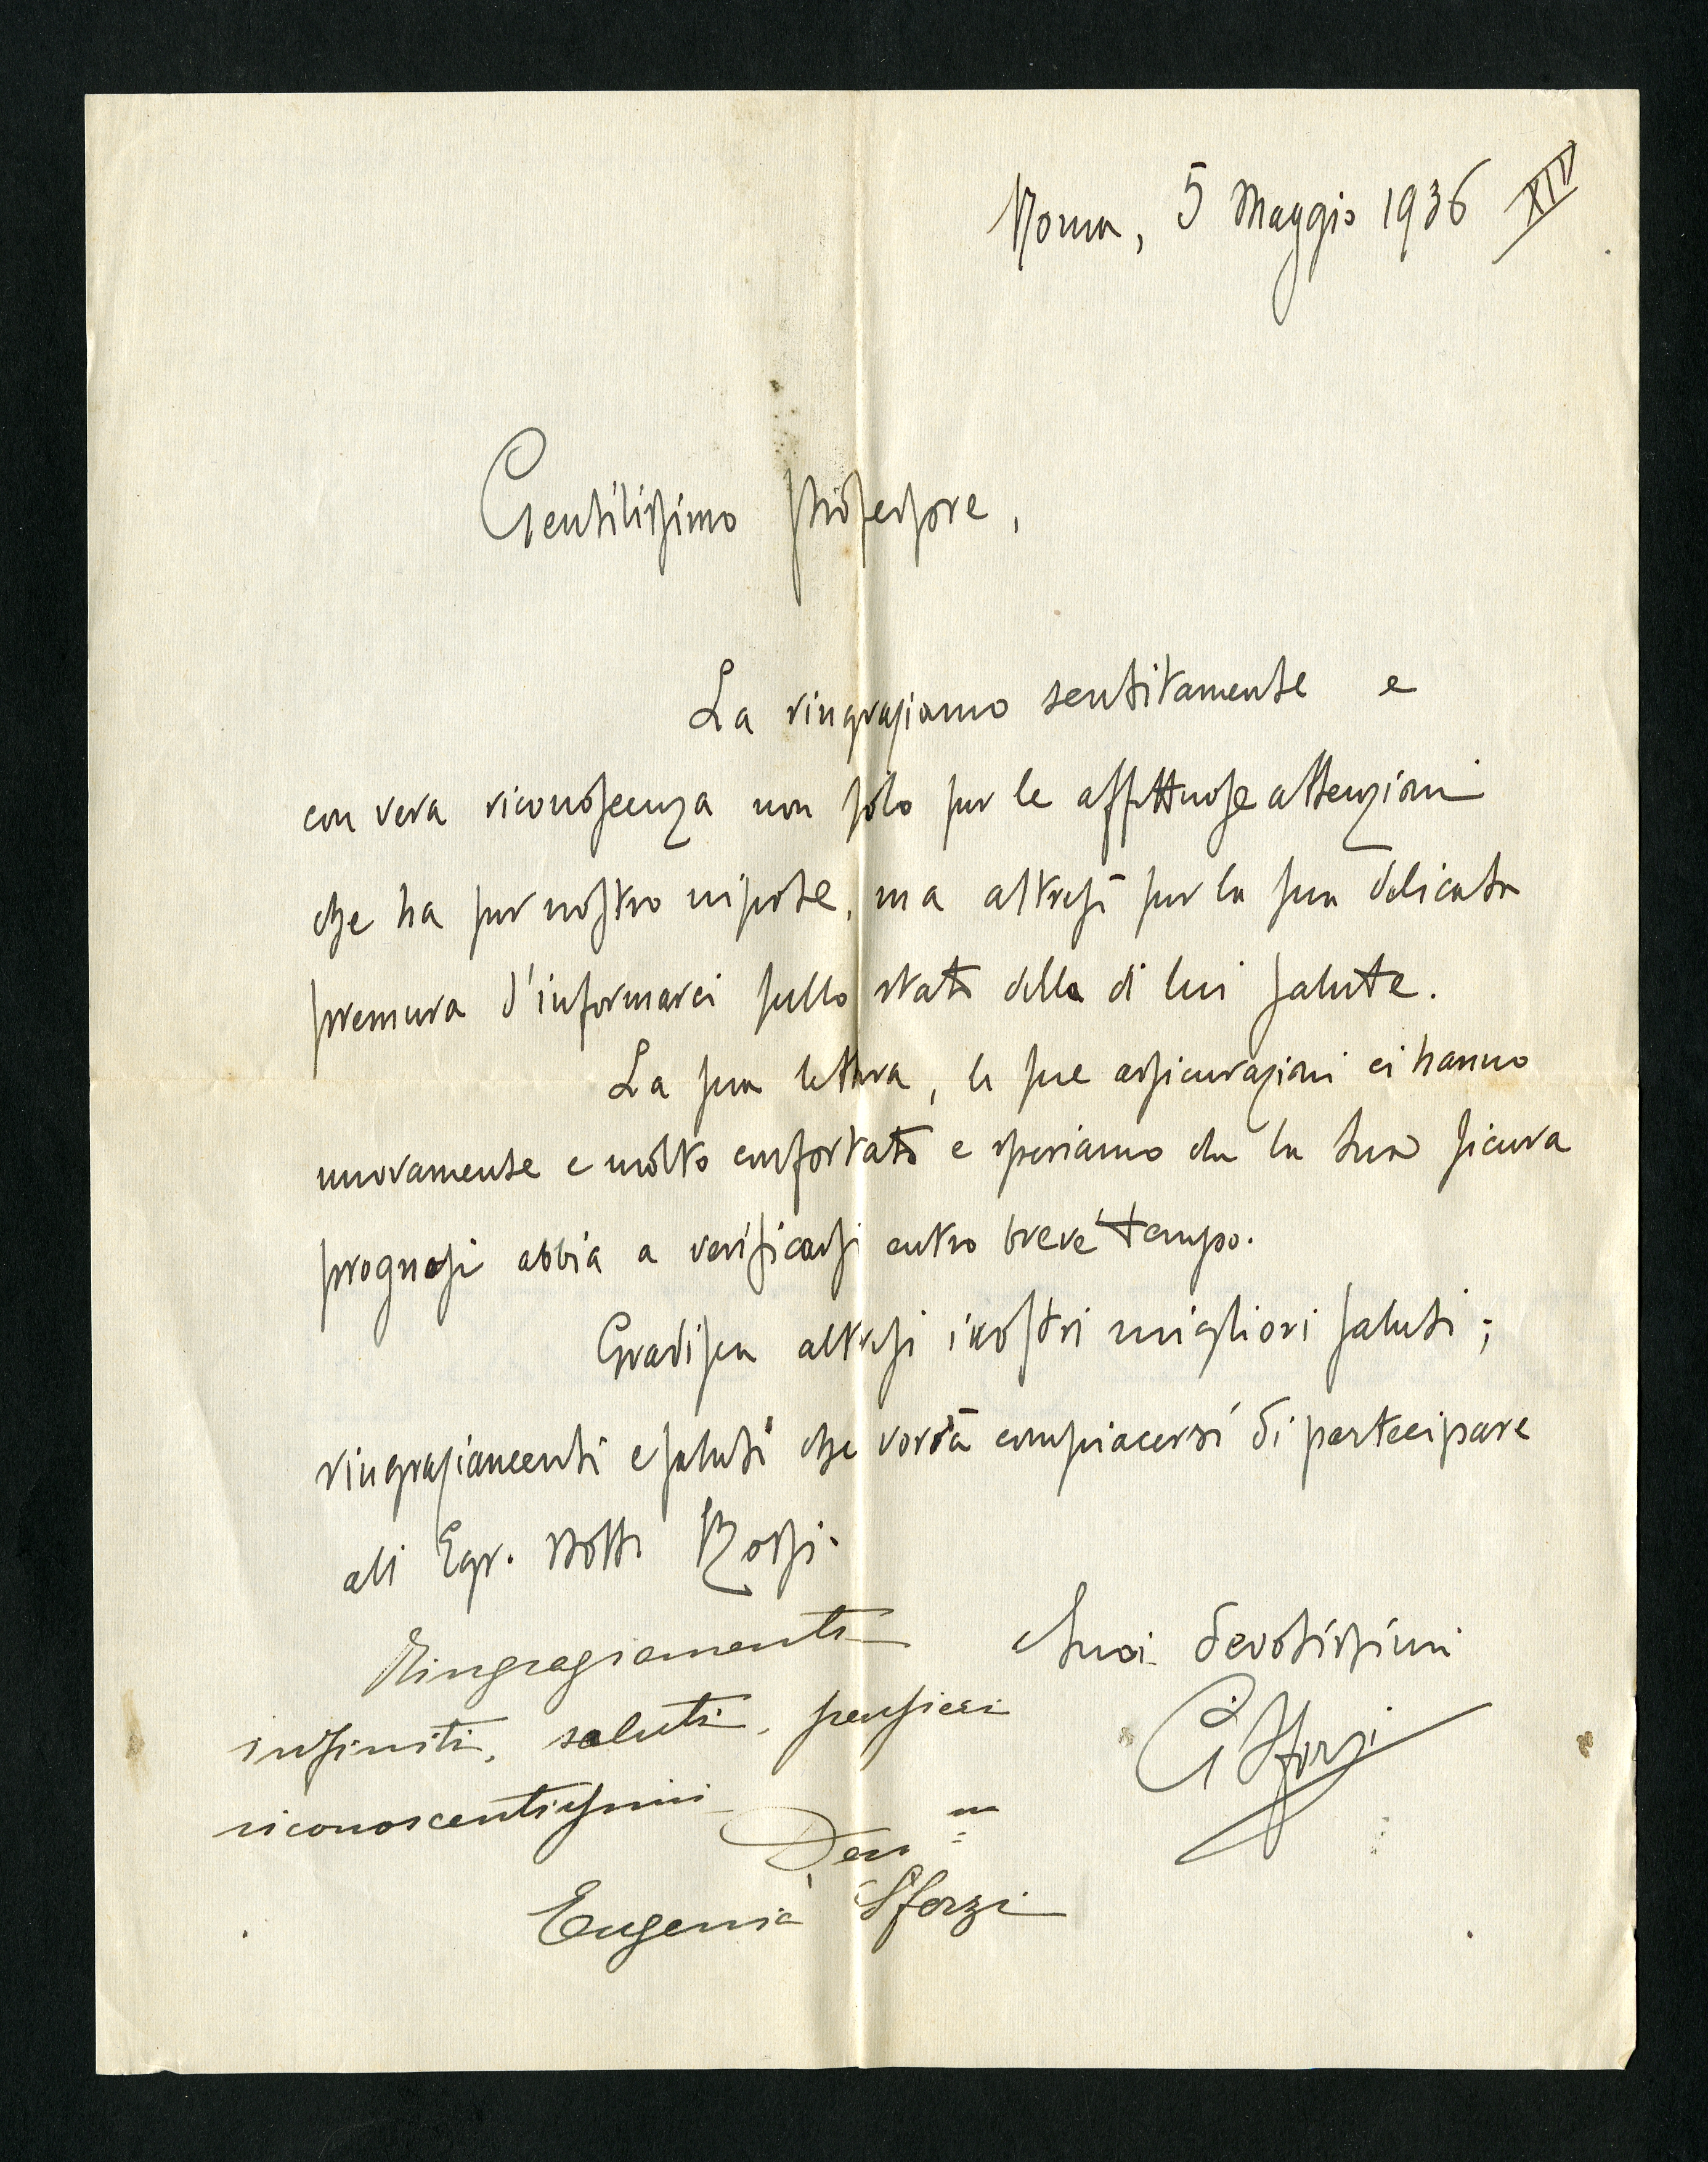 Roma, 5 Maggio 1936 XIV
Gentilissimo Professore,
La ringraziamo sentitamente e
con vera riconoscenza non solo per le affettuose attenzioni
che ha per nostro nipote, ma altresì per la sua delicata
premura d'informarci sullo stato della di lui salute.
La sua lettera, le sue assicurazioni ci hanno
nuovamente e molto confortato e speriamo che la sua sicura
prognosi abbia a verificarsi entro breve tempo.
Gradisca altresì i nostri migliori saluti;
ringraziamenti e saluti che vorrà compiacersi di partecipare
agli Egr. Dotti Rossi.
Suoi devotissimi
C Sforzi
Ringraziamenti
infiniti, saluti, pensieri
riconoscentissimi
Dev m
Eugenia Sforzi